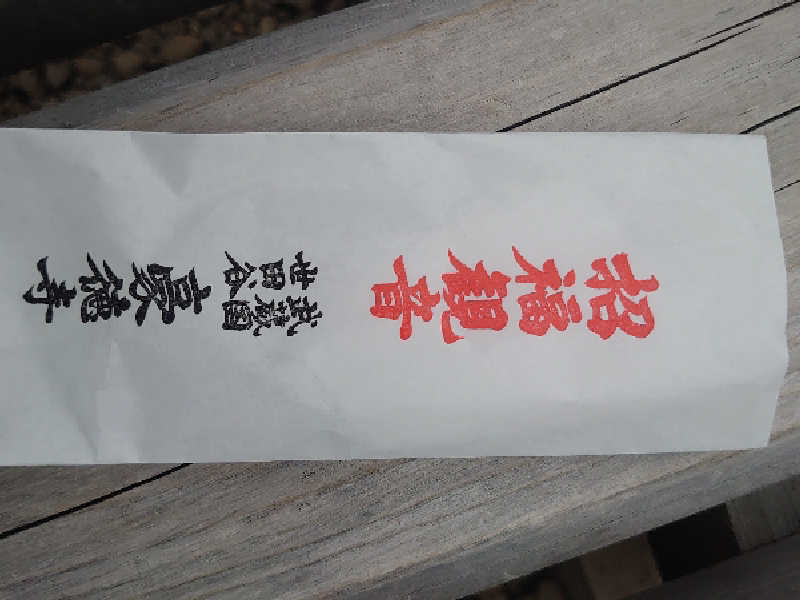 招福觀音
武蔵國
世田谷
豪德寺